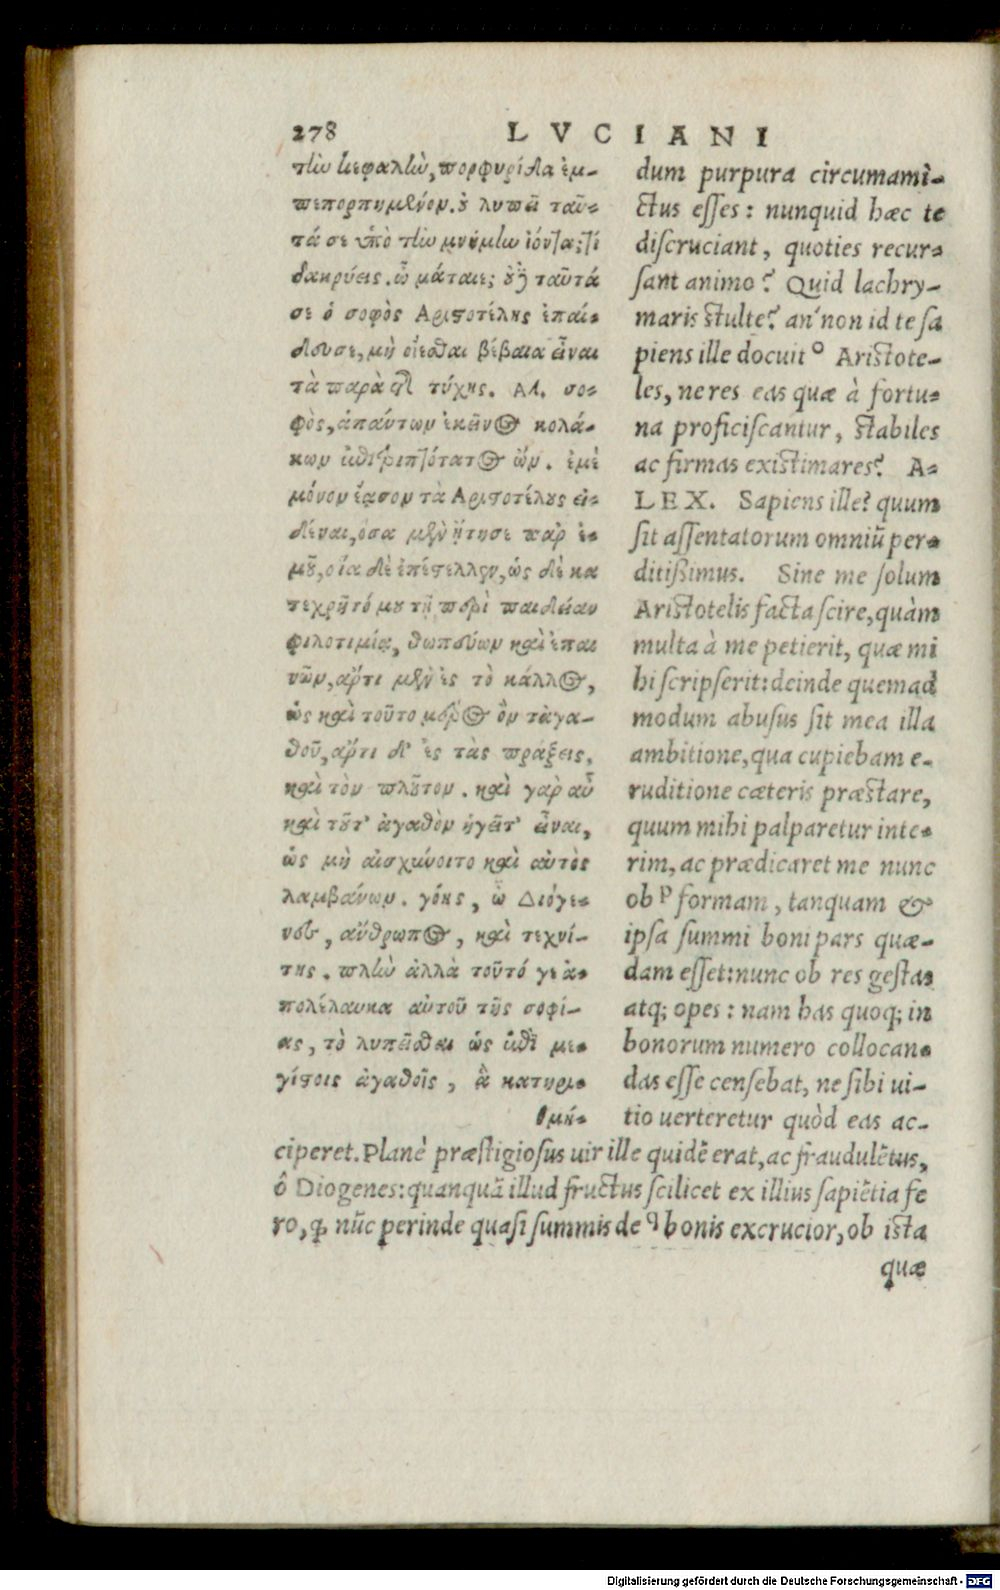 278 LVCIANI
τὴν κεφαλὴν, πορφυρίδα ἐμ-
πεπορπημένον. οὐ λυπεῖ ταῦ-
τά σε ὑπὸ τὴν μνήμην ἰόντα; τί
δακρύεις. ὦ μάταιε; οὐδὲ ταῦτά
σε ὁ σοφὸς Αριστοτέλης ἐπαί-
δευσε, μὴ οἴεσθαι βέβαια εἶναι
τὰ παρὰ τῆς τύχης. ΑΛ. σο-
φὸς, ἁπάντων ἐκεῖνος κολά-
κων ἐπιτριπτότατος ὤν. ἐμὲ
μόνον ἔασον τὰ Αριστοτέλους εἰ-
δέναι, ὅσα μὲν ᾔτησε παρ ἐ-
μοῦ, οἷα δὲ ἐπέστελλεν, ὡς δὲ κα
τεχρῆτό μου τῇ περὶ παιδείαν
φιλοτιμίᾳ, θωπεύων καὶ ἐπαι
νῶν, ἄρτι μὲν ἐς τὸ κάλλος,
ὡς καὶ τοῦτο μέρος ὂν τἀγα-
θοῦ, ἄρτι δ' ἐς τὰς πράξεις,
καὶ τὸν πλοῦτον. καὶ γὰρ αὖ
καὶ τοῦτ' ἀγαθὸν ἡγεῖτ' εἶναι,
ὡς μὴ αἰσχύνοιτο καὶ αὐτὸς
λαμβάνων. γόης, ὦ Διόγε-
νες, ἄνθρωπος, καὶ τεχνί-
της. πλὴν ἀλλὰ τοῦτό γε ἀ-
πολέλαυκα αὐτοῦ τῆς σοφί-
ας, τὸ λυπεῖσθαι ὡς ἐπὶ με-
γίστοις ἀγαθοῖς, ἃ κατηρι-
θμή-
dum purpura circumami-
ctus esses: nunquid hæc te
discruciant, quoties recur-
sant animo? Quid lachry-
maris stulte? an' non id te sa
piens ille docuit ᵒ Aristote-
les, ne res eas quæ à fortu-
na proficiscantur, stabiles
ac firmas existimares? A-
LEX. Sapiens ille? quum
sit assentatorum omniũ per-
ditißimus. Sine me solum
Aristotelis facta scire, quàm
multa à me petierit, quæ mi
hi scripserit: deinde quemad
modum abusus sit mea illa
ambitione, qua cupiebam e-
ruditione cæteris præstare,
quum mihi palparetur inte-
rim, ac prædicaret me nunc
ob ᵖ formam, tanquam &
ipsa summi boni pars quæ-
dam esset: nunc ob res gestas
atq; opes: nam has quoq; in
bonorum numero collocan-
das esse censebat, ne sibi ui-
tio uerteretur quòd eas ac-
ciperet. Planè præstigiosus uir ille quidẽ erat, ac fraudulẽtus,
ô Diogenes: quanquã illud fructus scilicet ex illius sapiẽtia fe
ro, ꝙ nũc perinde quasi summis de ᑫ bonis excrucior, ob ista
quæ
Digitalisierung gefördert durch die Deutsche Forschungsgemeinschaft - DFG